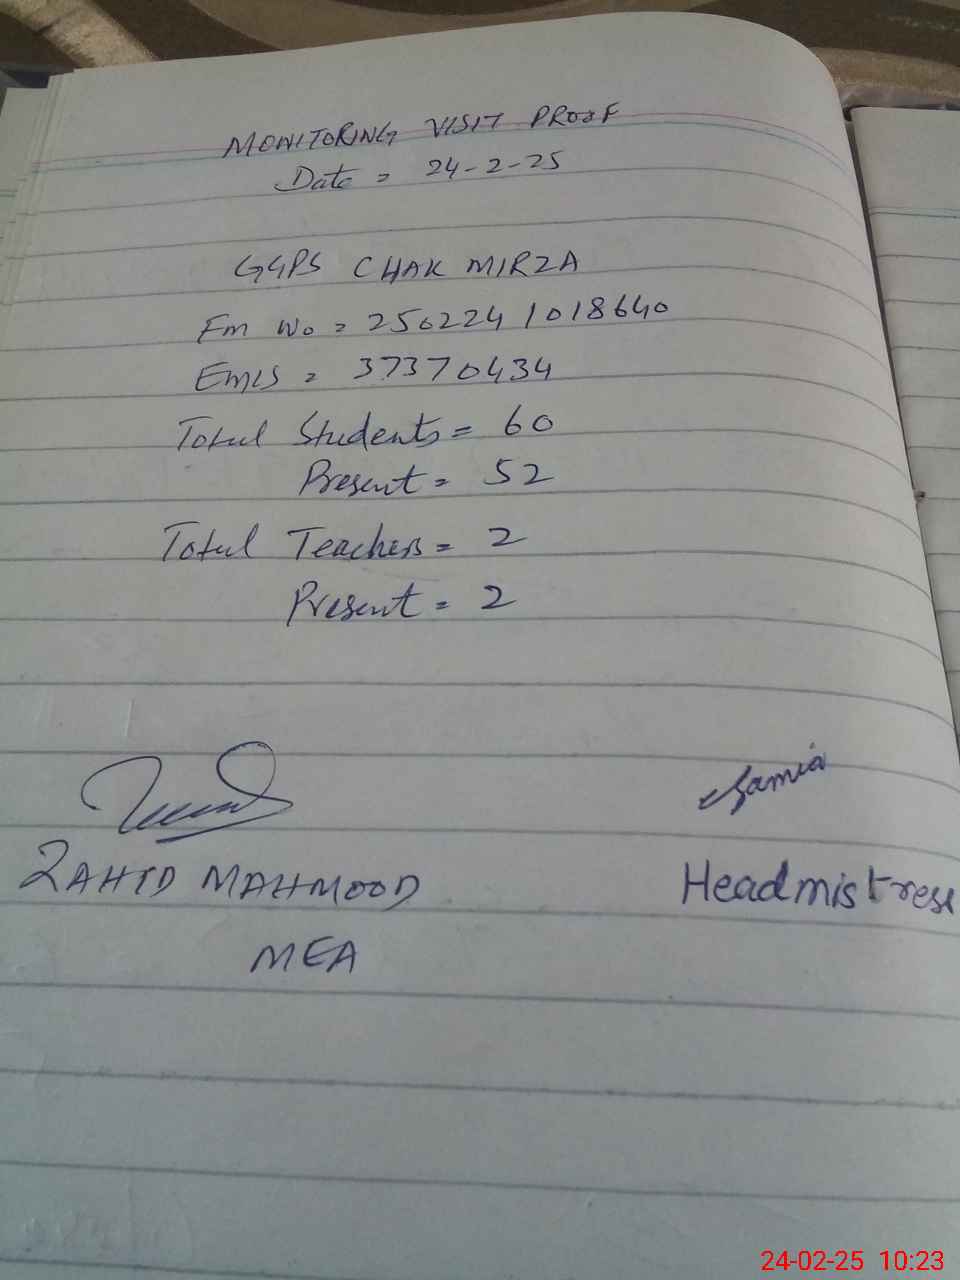 MONITORING VISIT PROOF
Date = 24-2-25
GGPS CHAK MIRZA
Em No = 2502241018640
EMIS = 37370434
Total Students = 60
Present = 52
Total Teachers = 2
Present = 2
Samia
ZAHID MAHMOOD
Headmistress
MEA
24-02-25 10:23